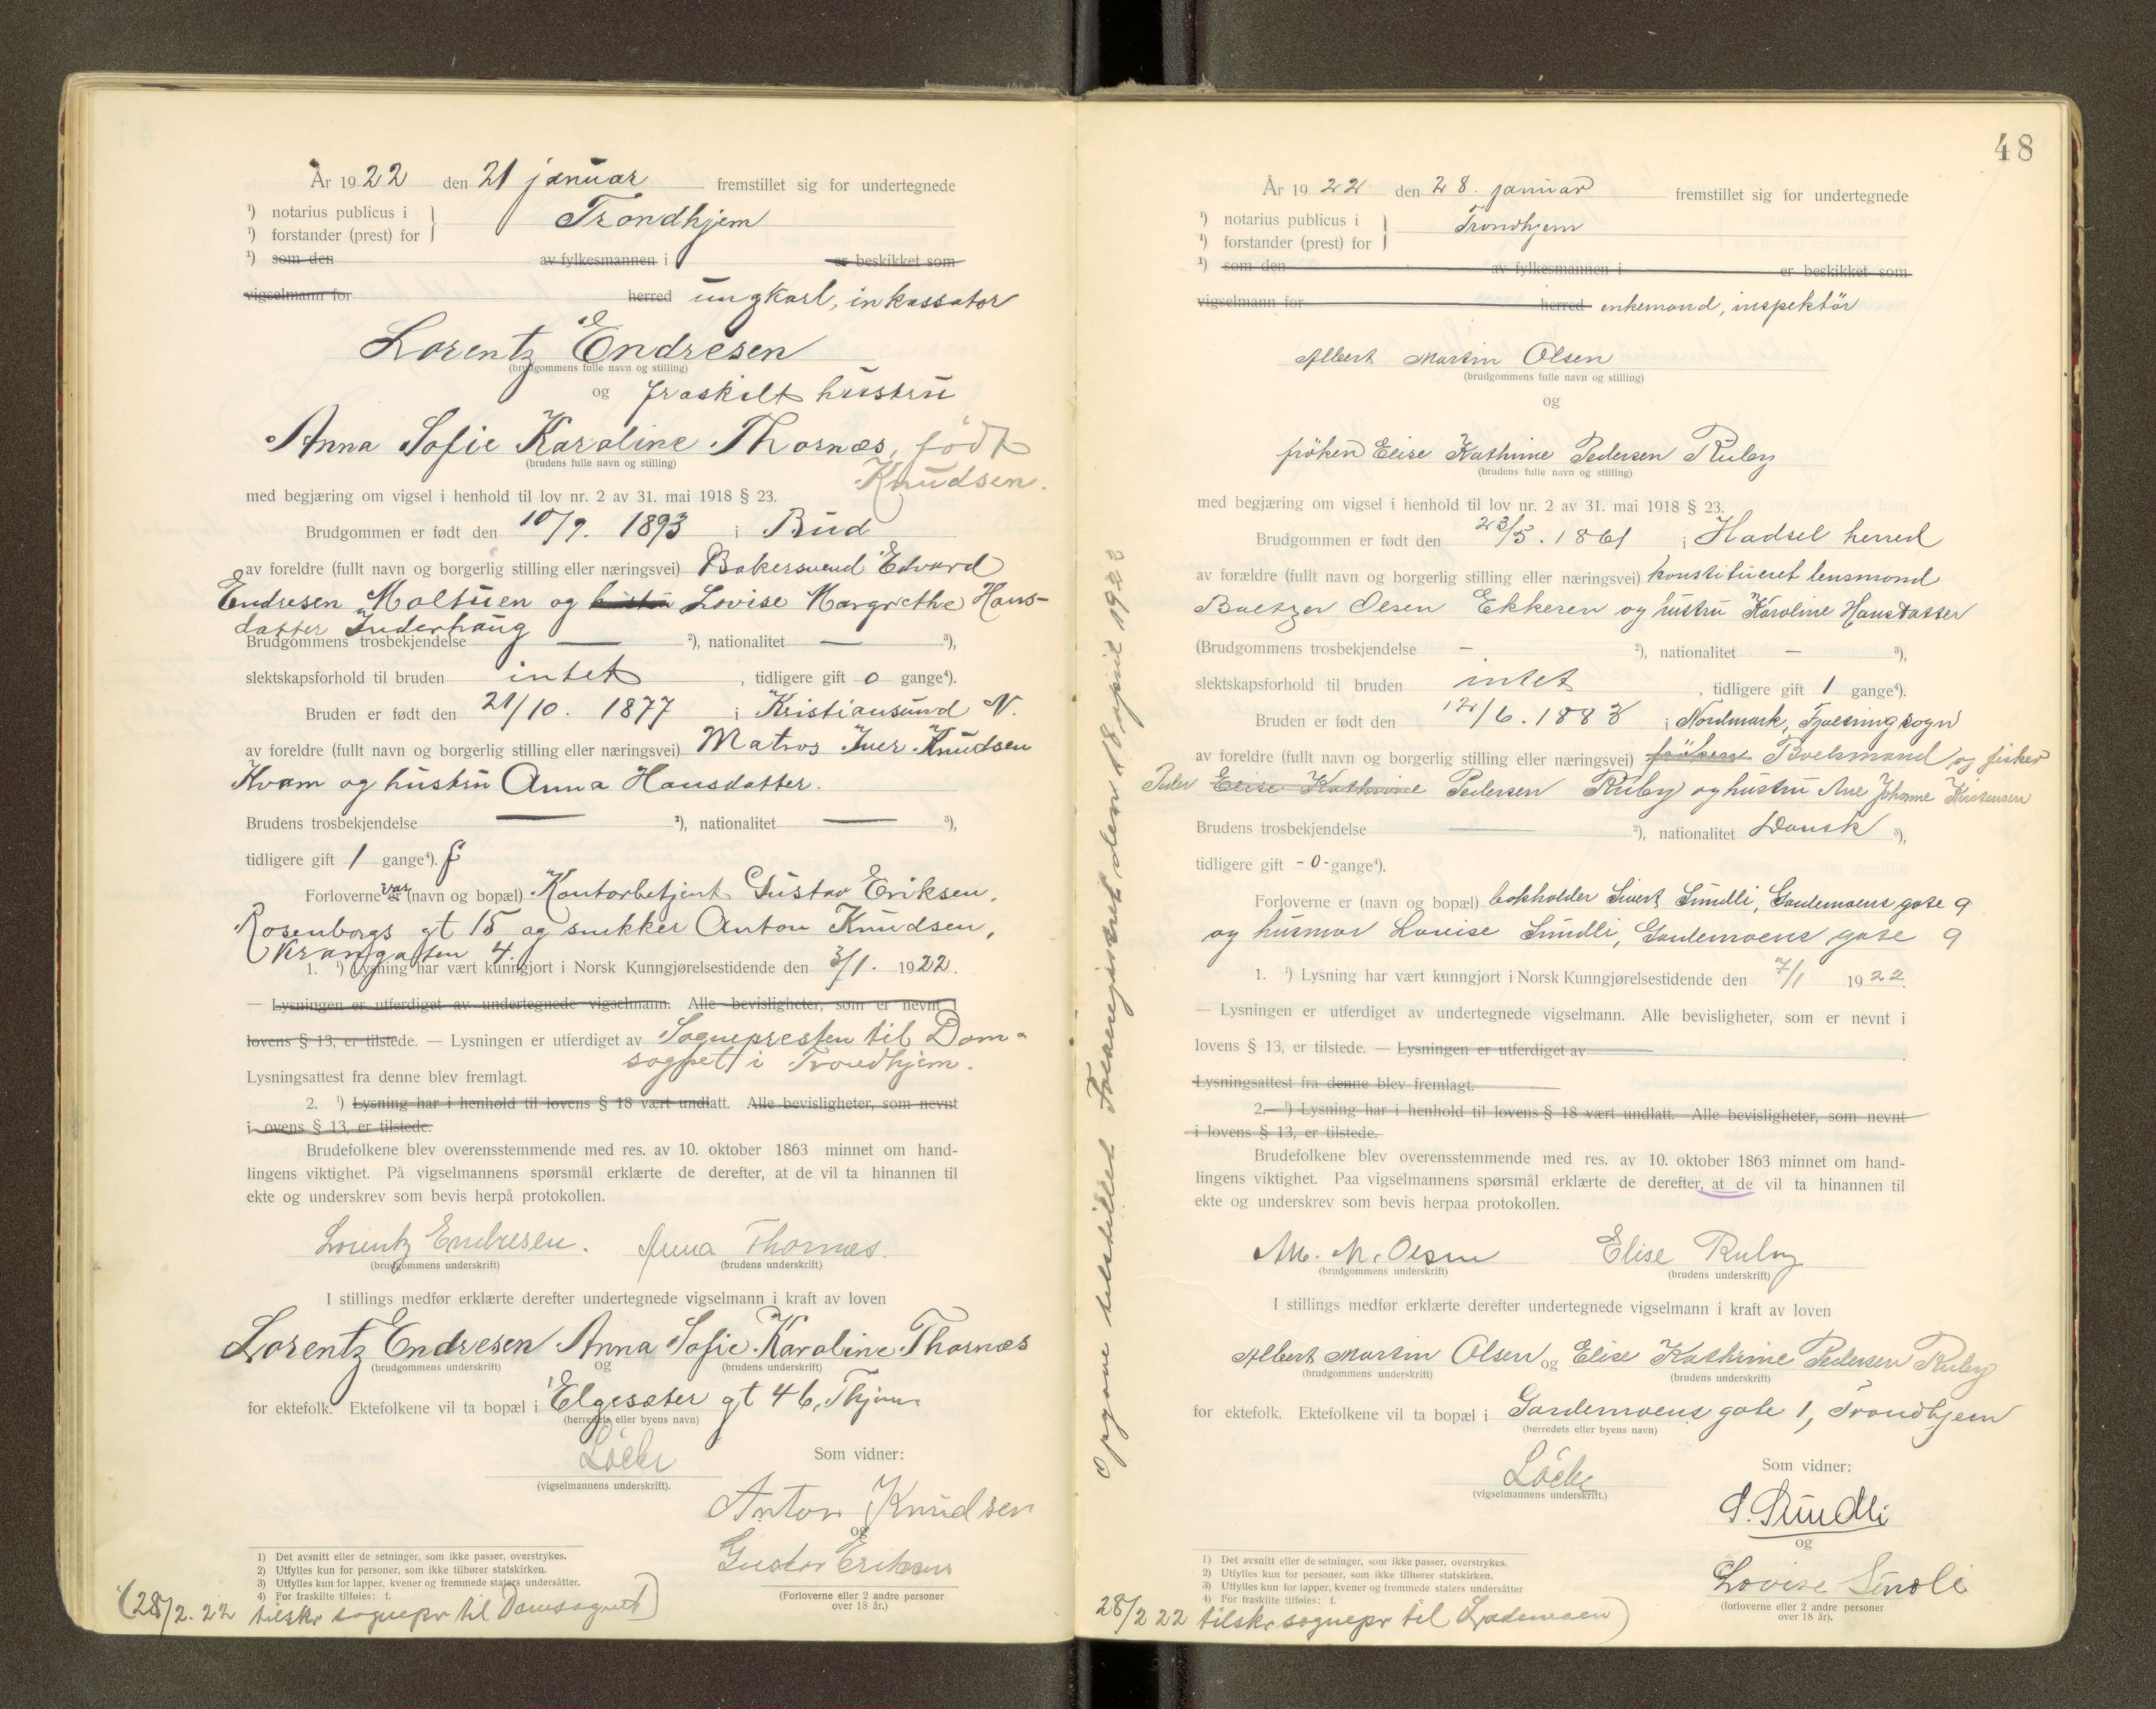 År 1922 den 21 januar fremstillet sig for undertegnede
¹) notarius publicus i
¹) forstander (prest) for } Trondhjem
¹) som den av fylkesmannen i er beskikket som
vigselmann for herred ungkarl, inkassator
Lorentz Endresen
(brudgommens fulle navn og stilling)
og fraskilt hustru
Anna Sofie Karoline Thornæs, født
(brudens fulle navn og stilling)
Knudsen.
med begjæring om vigsel i henhold til lov nr. 2 av 31. mai 1918 § 23.
Brudgommen er født den 10/9. 1893 i Bud
av foreldre (fullt navn og borgerlig stilling eller næringsvei) Bakersvend Edvard
Endresen Maltuen og hustru Lovise Margrethe Hans-
datter Inderhaug
Brudgommens trosbekjendelse — ²), nationalitet — ³),
slektskapsforhold til bruden intet, tidligere gift 0 gange⁴).
Bruden er født den 21/10. 1877 i Kristiansund N.
av foreldre (fullt navn og borgerlig stilling eller næringsvei) Matros Iver Knudsen
Kvam og hustru Anna Hansdatter.
Brudens trosbekjendelse — ²), nationalitet — ³),
tidligere gift 1 gange⁴). f
Forloverne var er (navn og bopæl) Kontorbetjent Gustav Eriksen,
Rosenborgs gt 15 og snekker Anton Knudsen,
Krangaten 4.
1. ¹) Lysning har vært kunngjort i Norsk Kunngjørelsestidende den 3/1. 1922.
— Lysningen er utferdiget av undertegnede vigselmann. Alle bevisligheter, som er nevnt i
lovens § 13, er tilstede. — Lysningen er utferdiget av Sognepresten til Dom-
sognet i Trondhjem.
Lysningsattest fra denne blev fremlagt.
2. ¹) Lysning har i henhold til lovens § 18 vært undlatt. Alle bevisligheter, som nevnt
i lovens § 13, er tilstede.
Brudefolkene blev overensstemmende med res. av 10. oktober 1863 minnet om hand-
lingens viktighet. På vigselmannens spørsmål erklærte de derefter, at de vil ta hinannen til
ekte og underskrev som bevis herpå protokollen.
Lorentz Endresen. Anna Thornæs.
(brudgommens underskrift) (brudens underskrift)
I stillings medfør erklærte derefter undertegnede vigselmann i kraft av loven
Lorentz Endresen Anna Sofie Karoline Thornæs
(brudgommens underskrift) og (brudens underskrift)
for ektefolk. Ektefolkene vil ta bopæl i Elgesæter gt 46, Thjem
(herredets eller byens navn)
Som vidner:
(vigselmannens underskrift).
Anton Knudsen
og
Gustav Eriksen
(Forloverne eller 2 andre personer
over 18 år.)
1) Det avsnitt eller de setninger, som ikke passer, overstrykes.
2) Utfylles kun for personer, som ikke tilhører statskirken.
3) Utfylles kun for lapper, kvener og fremmede staters undersåtter.
4) For fraskilte tilføies: f.
(28/2. 22 tilskr sognepr til Domsognet)
48
År 1922 den 28. januar fremstillet sig for undertegnede
¹) notarius publicus i
¹) forstander (prest) for } Trondhjem
¹) som den av fylkesmannen i er beskikket som
vigselmann for herred enkemand, inspektör
Albert Martin Olsen
(brudgommens fulle navn og stilling)
og
fröken Elise Kathrine Pedersen Ruby
(brudens fulle navn og stilling)
med begjæring om vigsel i henhold til lov nr. 2 av 31. mai 1918 § 23.
Brudgommen er født den 23/5. 1861 i Hadsel herred
av forældre (fullt navn og borgerlig stilling eller næringsvei) konstitueret lensmand
Baltzer Olsen Ekkeren og hustru Karoline Hansdatter
(Brudgommens trosbekjendelse — ²), nationalitet — ³),
slektskapsforhold til bruden intet, tidligere gift 1 gange⁴).
Bruden er født den 12/6. 1883 i Nordmark, Fjaltring sogn
av foreldre (fullt navn og borgerlig stilling eller næringsvei) fröken Boelsmand og fisker
Peder Elise Kathrine Pedersen Ruby og hustru Ane Johanne Kristensen
Brudens trosbekjendelse ²), nationalitet Dansk ³),
tidligere gift -0- gange⁴).
Forloverne er (navn og bopæl) bokholder Sivert Sundli, Gardemoens gate 9
og husmor Lovise Sundli, Gardemoens gate 9
1. ¹) Lysning har vært kunngjort i Norsk Kunngjørelsestidende den 7/1 1922.
— Lysningen er utferdiget av undertegnede vigselmann. Alle bevisligheter, som er nevnt i
lovens § 13, er tilstede. — Lysningen er utferdiget av
Lysningsattest fra denne blev fremlagt.
2. ¹) Lysning har i henhold til lovens § 18 vært undlatt. Alle bevisligheter, som nevnt
i lovens § 13, er tilstede.
Brudefolkene blev overensstemmende med res. av 10. oktober 1863 minnet om hand-
lingens viktighet. Paa vigselmannens spørsmål erklærte de derefter, at de vil ta hinannen til
ekte og underskrev som bevis herpaa protokollen.
M. Olsen Elise Ruby
(brudgommens underskrift) (brudens underskrift)
I stillings medfør erklærte derefter undertegnede vigselmann i kraft av loven
Albert Martin Olsen og Elise Kathrine Pedersen Ruby
(brudgommens underskrift) (brudens underskrift)
for ektefolk. Ektefolkene vil ta bopæl i Gardemoens gate 1, Trondhjem
(herredets eller byens navn)
Som vidner:
(vigselmannens underskrift.)
S. Sundli
og
Lovise Sundli
(forloverne eller 2 andre personer
over 18 år).
1) Det avsnitt eller de setninger, som ikke passer, overstrykes.
2) Utfylles kun for personer, som ikke tilhører statskirken.
3) Utfylles kun for lapper, kvener og fremmede staters undersåtter
4) For fraskilte tilføies: f.
28/2 22 tilskr sognepr til Lademoen)
Opgave tilstillet Folkeregisteret den 18 april 1923